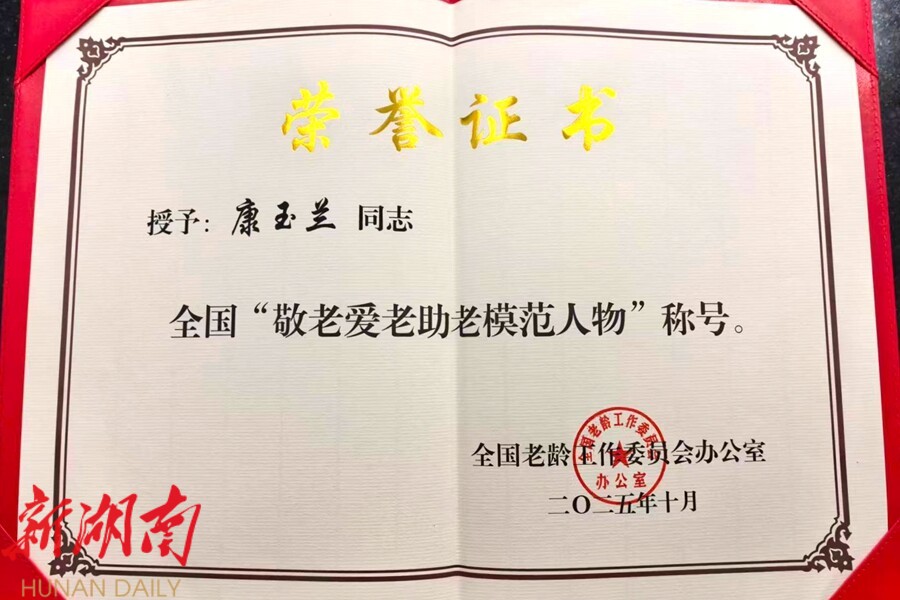 荣誉证书
授予：康玉兰 同志
全国“敬老爱老助老模范人物”称号。
全国老龄工作委员会办公室
全国老龄工作委员会
办公室
二〇二五年十月
新湖南
HUNAN DAILY